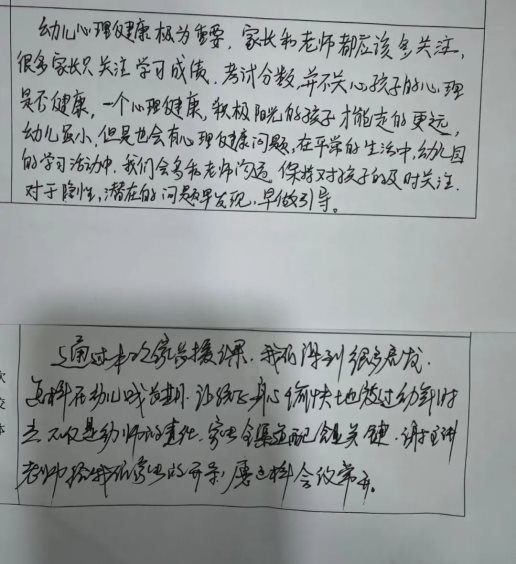 幼儿心理健康极为重要，家长和老师都应该多关注，
很多家长只关注学习成绩，考试分数，并不关心孩子的心理
是否健康，一个心理健康，积极阳光的孩子才能走的更远，
幼儿虽小，但是也会有心理健康问题，在平常的生活中，幼儿园
的学习活动中，我们会多和老师沟通，保持对孩子的及时关注．
对于隐性，潜在的问题早发现，早做引导。
通过本次家长 结果，我们得到很多启发．
怎样在幼儿成长期，让孩子身心愉快地度过幼年时
不仅是幼师的责任，家长 配合是关键，谢 讲
老师给我们家长的 ，愿这样会议常开。
次
交
体